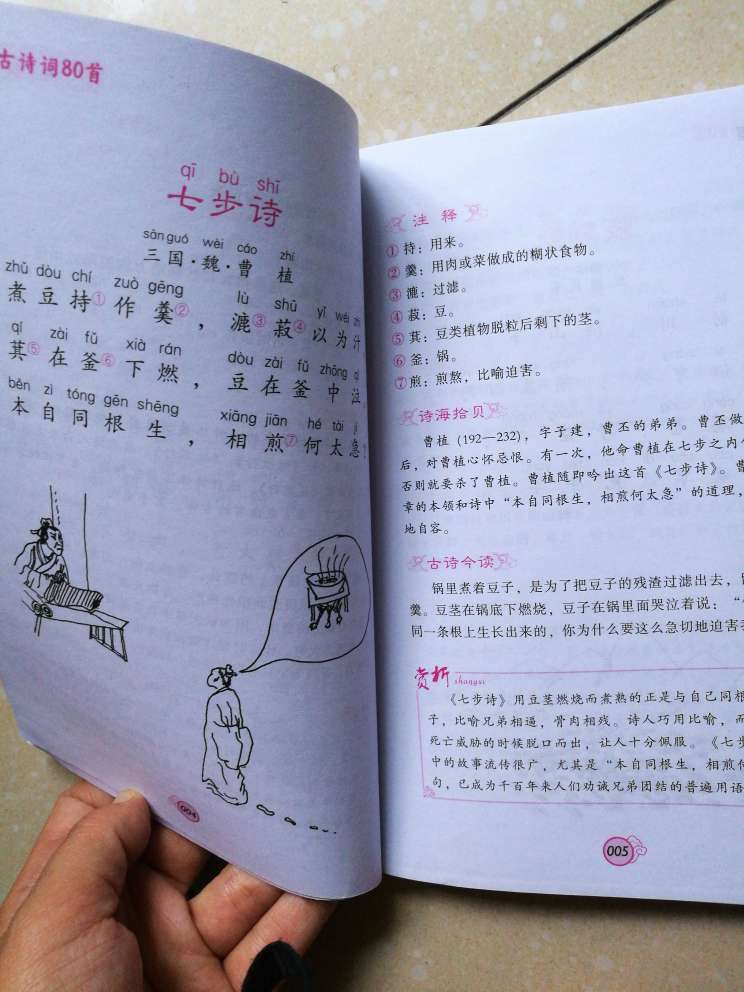 古诗词80首
qī bù shī
七步诗
sān guó wèi cáo zhí
三国·魏·曹 植
zhǔ dòu chí zuò gēng lù shū yǐ wéi zhī
煮豆持①作羹②，漉③菽④以为汁
qí zài fǔ xià rán dòu zài fǔ zhōng qì
萁⑤在釜⑥下燃，豆在釜中泣
běn zì tóng gēn shēng xiāng jiān hé tài jí
本自同根生，相煎⑦何太急？
004
注释
①持：用来。
②羹：用肉或菜做成的糊状食物。
③漉：过滤。
④菽：豆。
⑤萁：豆类植物脱粒后剩下的茎。
⑥釜：锅。
⑦煎：煎熬，比喻迫害。
诗海拾贝
曹植（192—232），字子建，曹丕的弟弟。曹丕做
后，对曹植心怀忌恨。有一次，他命曹植在七步之内
否则就要杀了曹植。曹植随即吟出这首《七步诗》。曹
章的本领和诗中“本自同根生，相煎何太急”的道理，
地自容。
古诗今读
锅里煮着豆子，是为了把豆子的残渣过滤出去，
羹。豆茎在锅底下燃烧，豆子在锅里面哭泣着说：“
同一条根上生长出来的，你为什么要这么急切地迫害
赏析 shangxi
《七步诗》用豆茎燃烧而煮熟的正是与自己同根
子，比喻兄弟相逼，骨肉相残。诗人巧用比喻，而
死亡威胁的时候脱口而出，让人十分佩服。《七步
中的故事流传很广，尤其是“本自同根生，相煎何
句，已成为千百年来人们劝诫兄弟团结的普遍用语
005